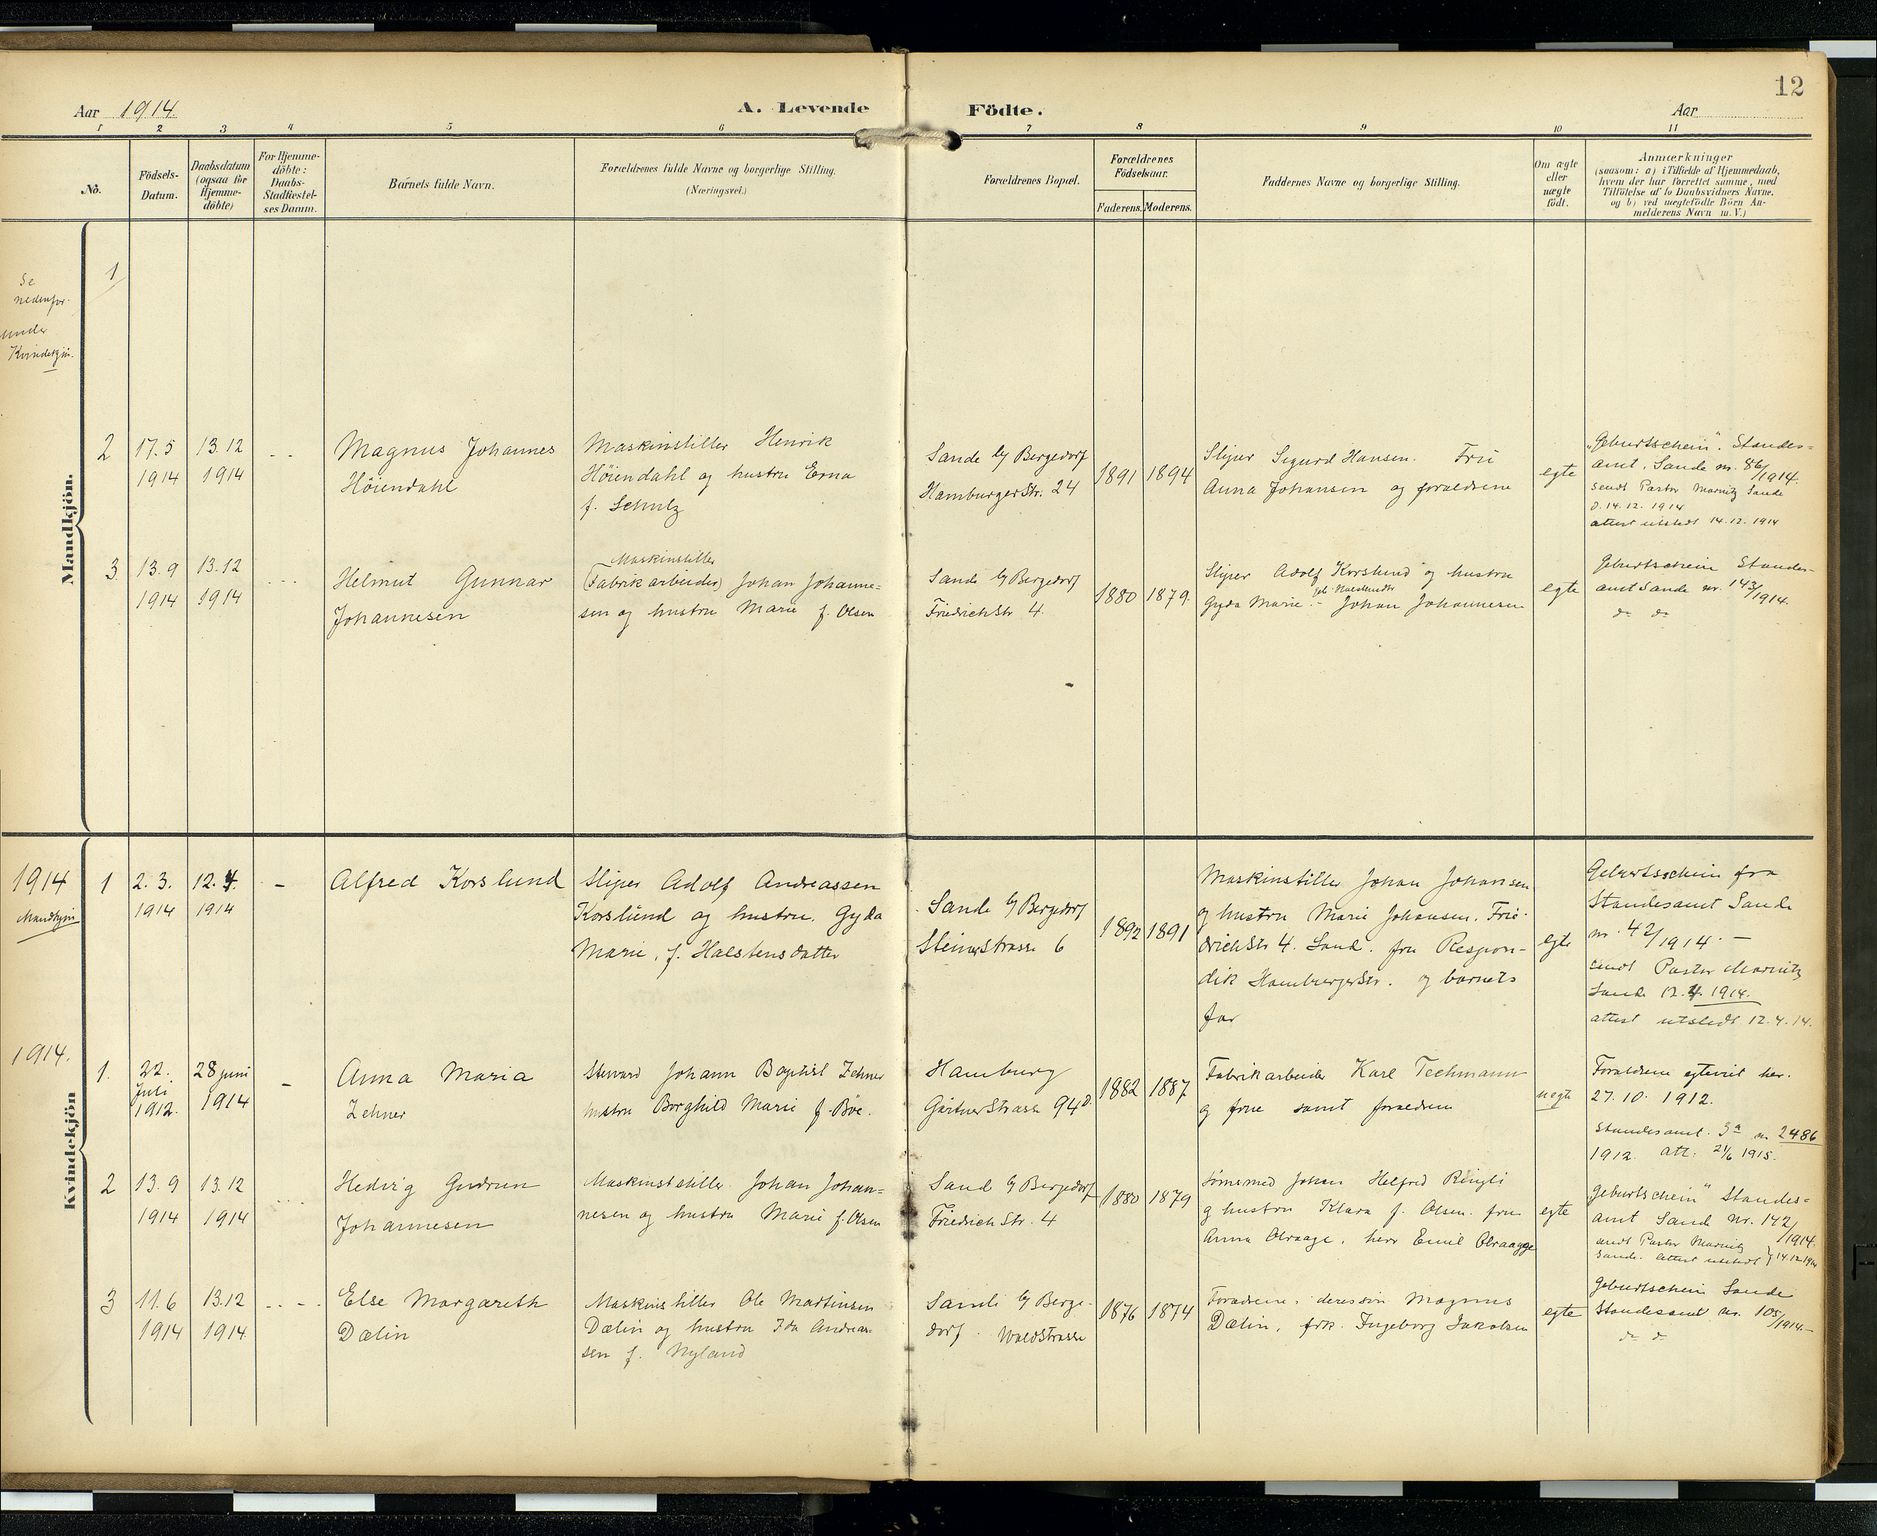 12
Aar 1914.
A. Levende Födte.
Aar
1 2 3 4 5 6 7 8 9 10 11
No.
Födsels-Datum.
Daabsdatum (ogsaa for Hjemme-döbte)
For Hjemme-döbte: Daabs-Stadfæstel-ses Datum.
Barnets fulde Navn.
Forældrenes fulde Navne og borgerlige Stilling. (Næringsvei.)
Forældrenes Bopæl.
Forældrenes Födselsaar.
Faderens. Moderens.
Faddernes Navne og borgerlige Stilling.
Om ægte eller uægte födt.
Anmærkninger
(saasom: a) i Tilfælde af Hjemmedaab,
hvem der har forrettet samme, med
Tilföielse af to Daabsvidners Navne.
og b) ved uægtefödte Börn An-
melderens Navn m. V.)
Mandkjön.
1
Se
nedenfor
under
Kvindekjön.
2
17.5
1914
13.12
1914
Magnus Johannes
Höiendahl
Maskinstiller Henrik
Höiendahl og hustru Erna
f. Schulz
Sande b/ Bergedorf
Hamburger Str. 24
1891
1894
Sliper Sigurd Hansen. Fru
Anna Johansen og foraldrene
egte
"Geburtschein". Standes-
amt. Sande nr. 86/1914.
sendt Pastor Marnitz Sande
d. 14.12.1914
attest utstedt 14.12.1914
3
13.9
1914
13.12
1914
Helmut Gunnar
Johannesen
Maskinstiller
(Fabrikarbeider) Johan Johanne-
sen og hustru Marie f. Olsen
Sande b/ Bergedorf
Friedrich Str. 4.
1880
1879
Sliper Adolf Korslund og hustru
Gyda Marie - Johan Johannesen
egte
Geburtschein Standes-
amt Sande nr. 143/1914.
do do
1914
Mandkjön
1
2.3.
1914
12.4.
1914
-
Alfred Korslund
Sliper Adolf Andreassen
Korslund og hustru. Gyda
Marie, f. Halstensdatter
Sande b/ Bergedorf
Steinerstrasse 6
1892
1891
Maskinstiller Johan Johansen
og hustru Marie Johansen. Frie-
drich Str 4. Sand. fru Respon-
dik Hamburgerstr. og barnets
far
egte
Geburtsschein fra
Standesamt Sande
nr. 42/1914. -
sendt Pastor Marnitz
Sande 12.4.1914.
attest utstedt 12.4.14.
Kvindekjön
1914.
1.
22.
Juli
1912.
28 juni
1914
-
Anna Maria
Zehner
Steward Johann Baptist Zehner
hustru Borghild Marie f. Böe.
Hamburg
Gärtner Strasse 94
1882
1887
Fabrikarbeider Karl Techmann
og frue samt foraldrene
uegte
Foraldrene egteviet her.
27.10.1912.
Standesamt. 3a nr. 2486
1912. att. 21/6 1915.
2
13.9
1914
13.12
1914
Hedvig Gudrun
Johannesen
Maskinstiller Johan Johan-
nesen og hustru Marie f. Olsen
Sand b/ Bergedorf
Friedrich Str. 4
1880
1879
Johan Helfred Ringli
og hustru Klara f. Olsen. fru
Anna Olraage, herr Emil Olraagge
egte
Geburtschein" Standes-
amt Sand nr. 142/1914.
sendt Pastor Marnitz
Sande. Attest utstedt } 14.12.1914
3
11.6
1914
13.12
1914
Else Margareth
Dælin
Maskinstiller Ole Martinsen
Dælin og hustru Ida Andreas-
sen f. Nyland
Sande b/ Berge-
dorf. Waldstrasse
1876
1874
Foraldrene, deres sön Magnus
Dælin, frk. Ingeborg Jakobsen
egte
Geburtschein Sande
Standesamt nr. 105/1914.-
do do